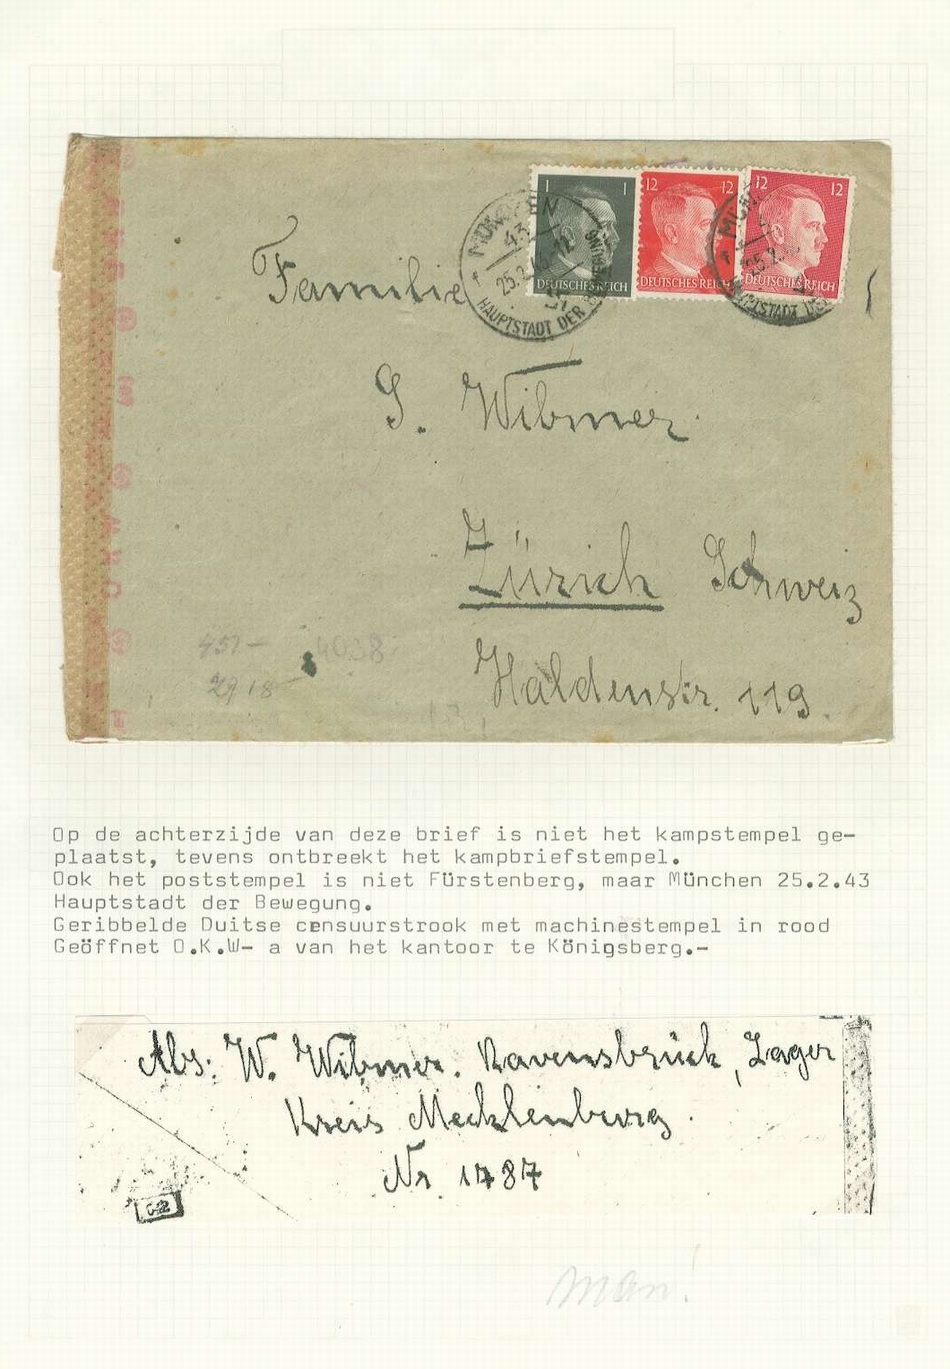 1 1
12 12
12 12
DEUTSCHES REICH
DEUTSCHES REICH
DEUTSCHES REICH
MÜNCHEN
43
HAUPTSTADT DER
25.2.
HAUPTSTADT
Familie
G. Wibmer
Zürich Schweiz
Haldenstr. 119.
457-
4038
2918-
Op de achterzijde van deze brief is niet het kampstempel ge-
plaatst, tevens ontbreekt het kampbriefstempel.
Ook het poststempel is niet Fürstenberg, maar München 25.2.43
Hauptstadt der Bewegung.
Geribbelde Duitse censuurstrook met machinestempel in rood
Geöffnet O.K.W- a van het kantoor te Königsberg.-
Abs: W. Wibmer. Ravensbrück, Lager
Kreis Mecklenburg.
Nr. 1787
man!